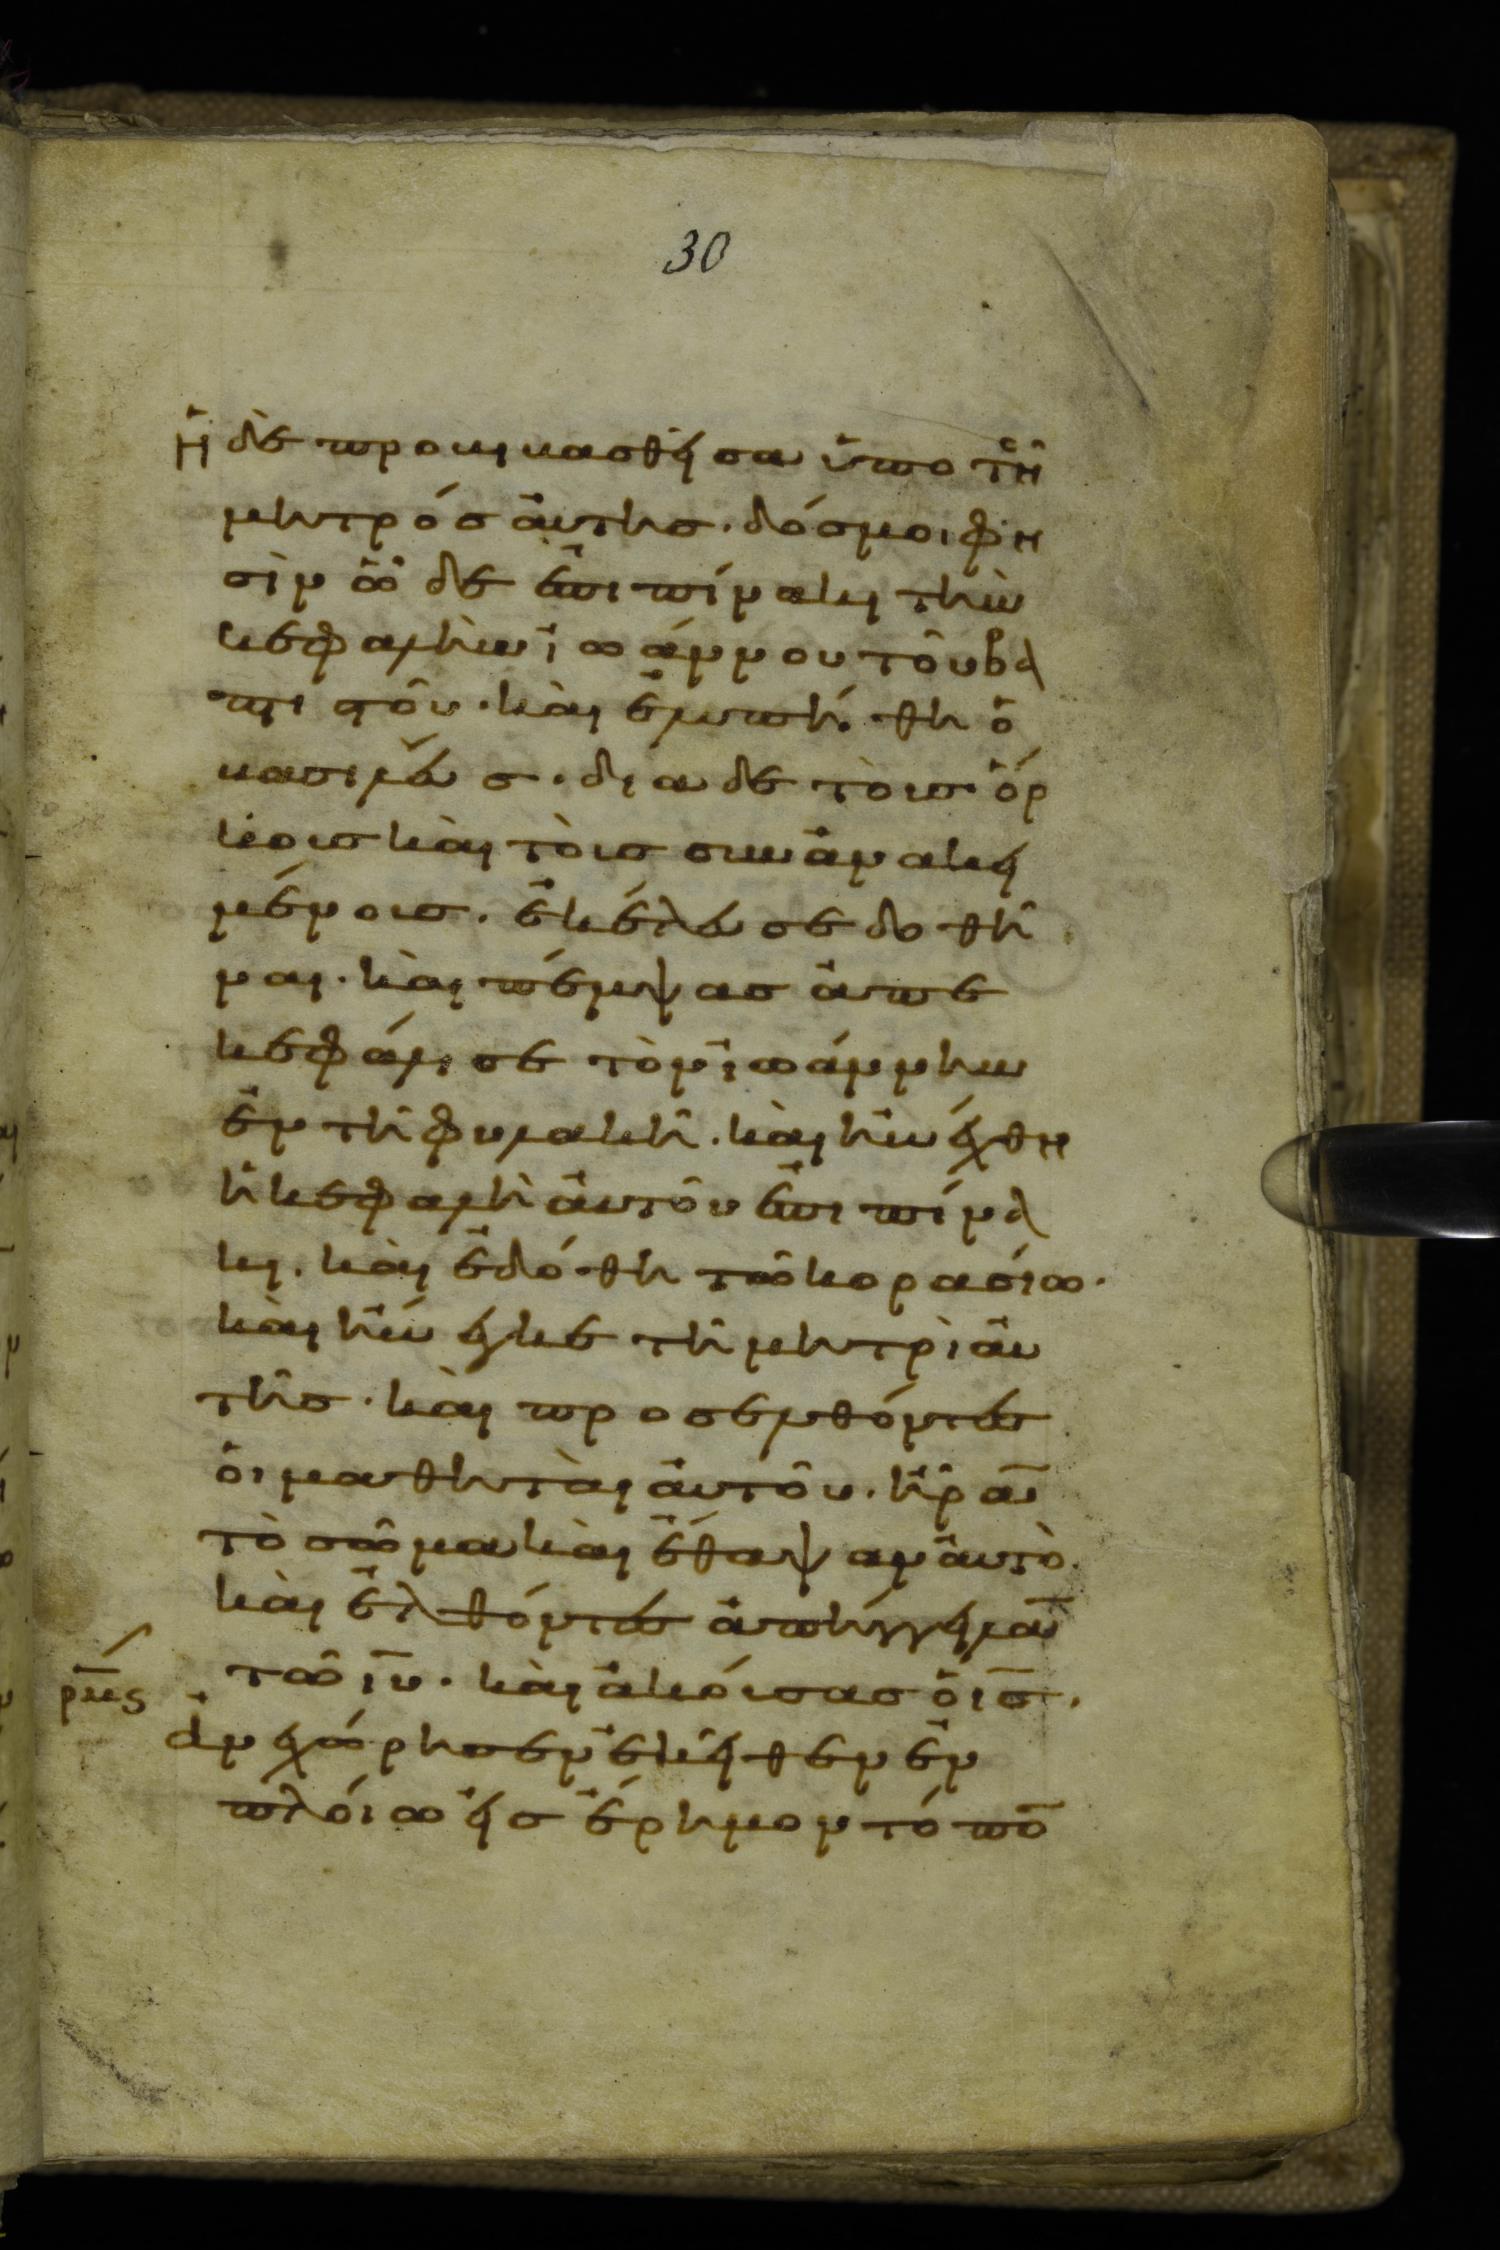 30
Ἡ δὲ προκικασθεῖσα ὑπὸ τῆ
μητρόσ ἀυτησ. δόσμοι φη
σὶν ὧδε ἐπι πίνακι τὴν
κεφαλὴν ἰωάννου τοῦ βα
πτιστοῦ. κὰι ἐλυπήθη ὁ
κασιλέυσ. δια δὲ τὸυσ ὅρ
κουσ κὰι τὸυσ συνἀνακει
μένουσ. ἐκέλευσε δοθῆ
ναι. κὰι πέμψασ ἀπε
κεφάλισε τὸν ἰωάννην
ἐν τῆ φυλακῆ. κὰι ἠνέχθη
ἡ κεφαλὴ ἀυτοῦ ἐπι πίνα
κι. κὰι ἐδόθη τῶ κορασίω.
κὰι ἤνεγκε τῆ μητρὶ ἀυ
τῆσ. κὰι προσελθόντεσ
ὁι μαθητὰι ἀυτοῦ. ἦρα̅
τὸ σῶμα κὰι ἔθαψαν ἀυτὸ.
κὰι ἐλθόντεσ ἀπήγγειλα̅
τῶ ι̅υ. κὰι ἀκόυσασ ὁ ι̅σ.
ἀνεχώρησεν ἐκεῖθεν ἐν
πλόιω εἰσ ἔρημον τόπο̅